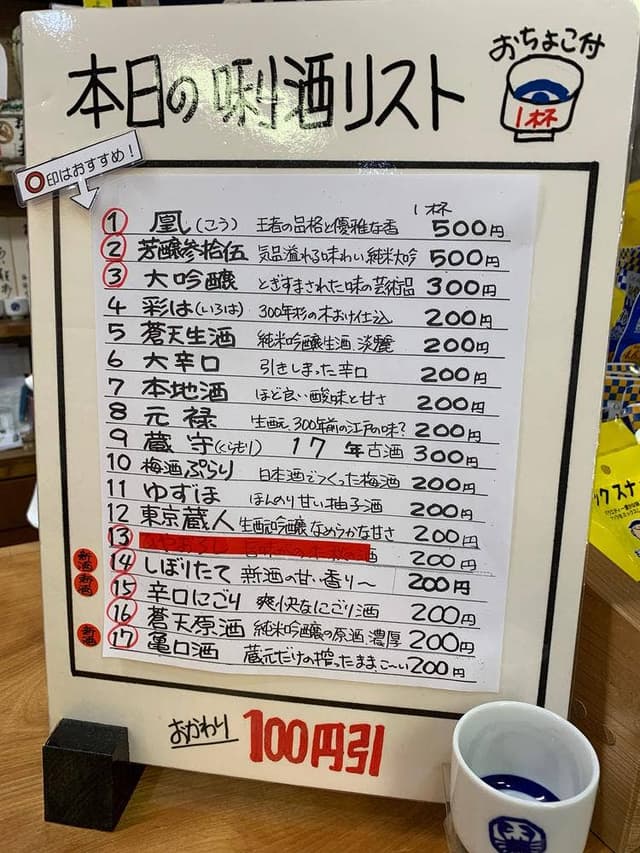 本日の利き酒リスト
おちょこ付
1杯
○印はおすすめ！
1杯
① 凰(こう) 王者の品格と優雅な香 500円
② 芳醸参拾伍 気品溢れる味わい純米大吟 500円
③ 大吟醸 とぎすまされた味の芸術品 300円
4 彩は(いろは) 300年杉の木おけ仕込 200円
5 蒼天生酒 純米吟醸生酒 淡麗 200円
6 大辛口 引きしまった辛口 200円
7 本地酒 ほど良い酸味と甘さ 200円
8 元禄 生酛、300年前の江戸の味? 200円
9 蔵守(くらもり) 17年古酒 300円
10 梅酒ぷらり 日本酒でつくった梅酒 200円
11 ゆずは ほんのり甘い柚子酒 200円
12 東京蔵人 生酛吟醸 なめらかな甘さ 200円
⑬ 酒 200円
新酒 ⑭ しぼりたて 新酒の甘い香り〜 200円
新酒 ⑮ 辛口にごり 爽快なにごり酒 200円
⑯ 蒼天原酒 純米吟醸の原酒 濃厚 200円
新酒 ⑰ 亀口酒 蔵元だけの搾ったままこ〜い 200円
おかわり 100円引